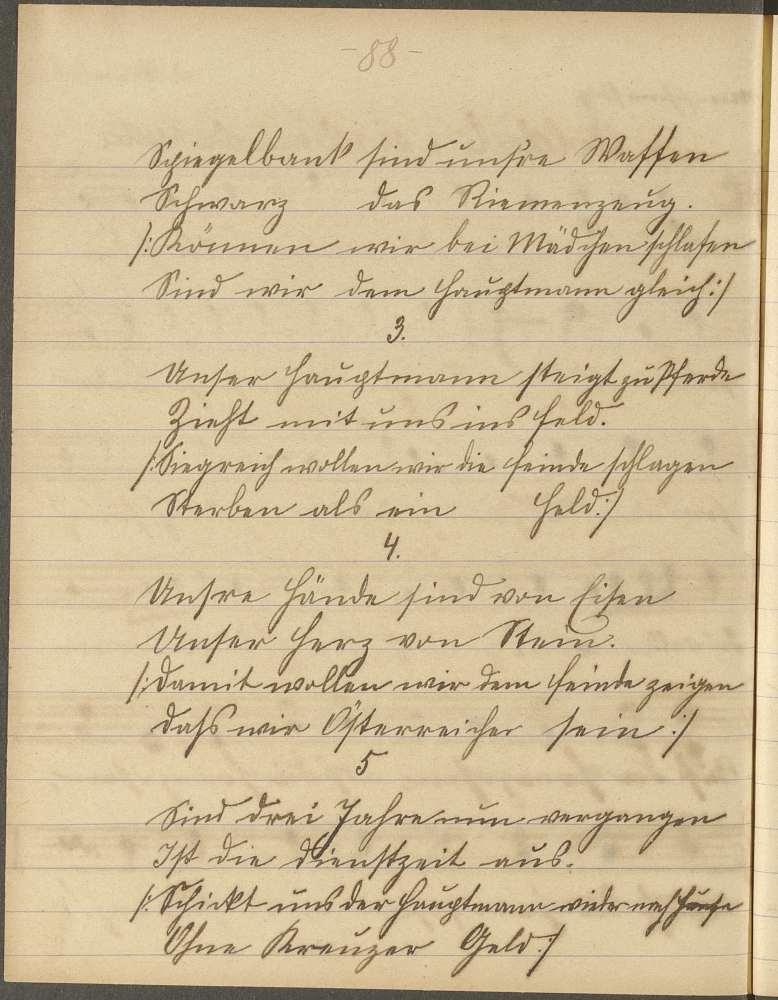 -88-
Spiegelbank sind unsre Waffen
Schwarz das Riemenzeug.
/:Können wir bei Mädchen schlafen
Sind wir dem Hauptmann gleich:/
3.
Unser Hauptmann steigt zu Pferde
Zieht mit uns ins Feld.
/:Siegreich wollen wir die Feinde schlagen
Sterben als ein Held:/
4.
Unsre Hände sind von Eisen
Unser Herz von Stein.
/:Damit wollen wir dem Feinde zeigen
Dass wir Österreicher sein:/
5
Sind drei Jahre nun vergangen
Ist die Dienstzeit aus.
/:Schickt uns der Hauptmann wieder nach Hause
Ohne Kreuzer Geld:/